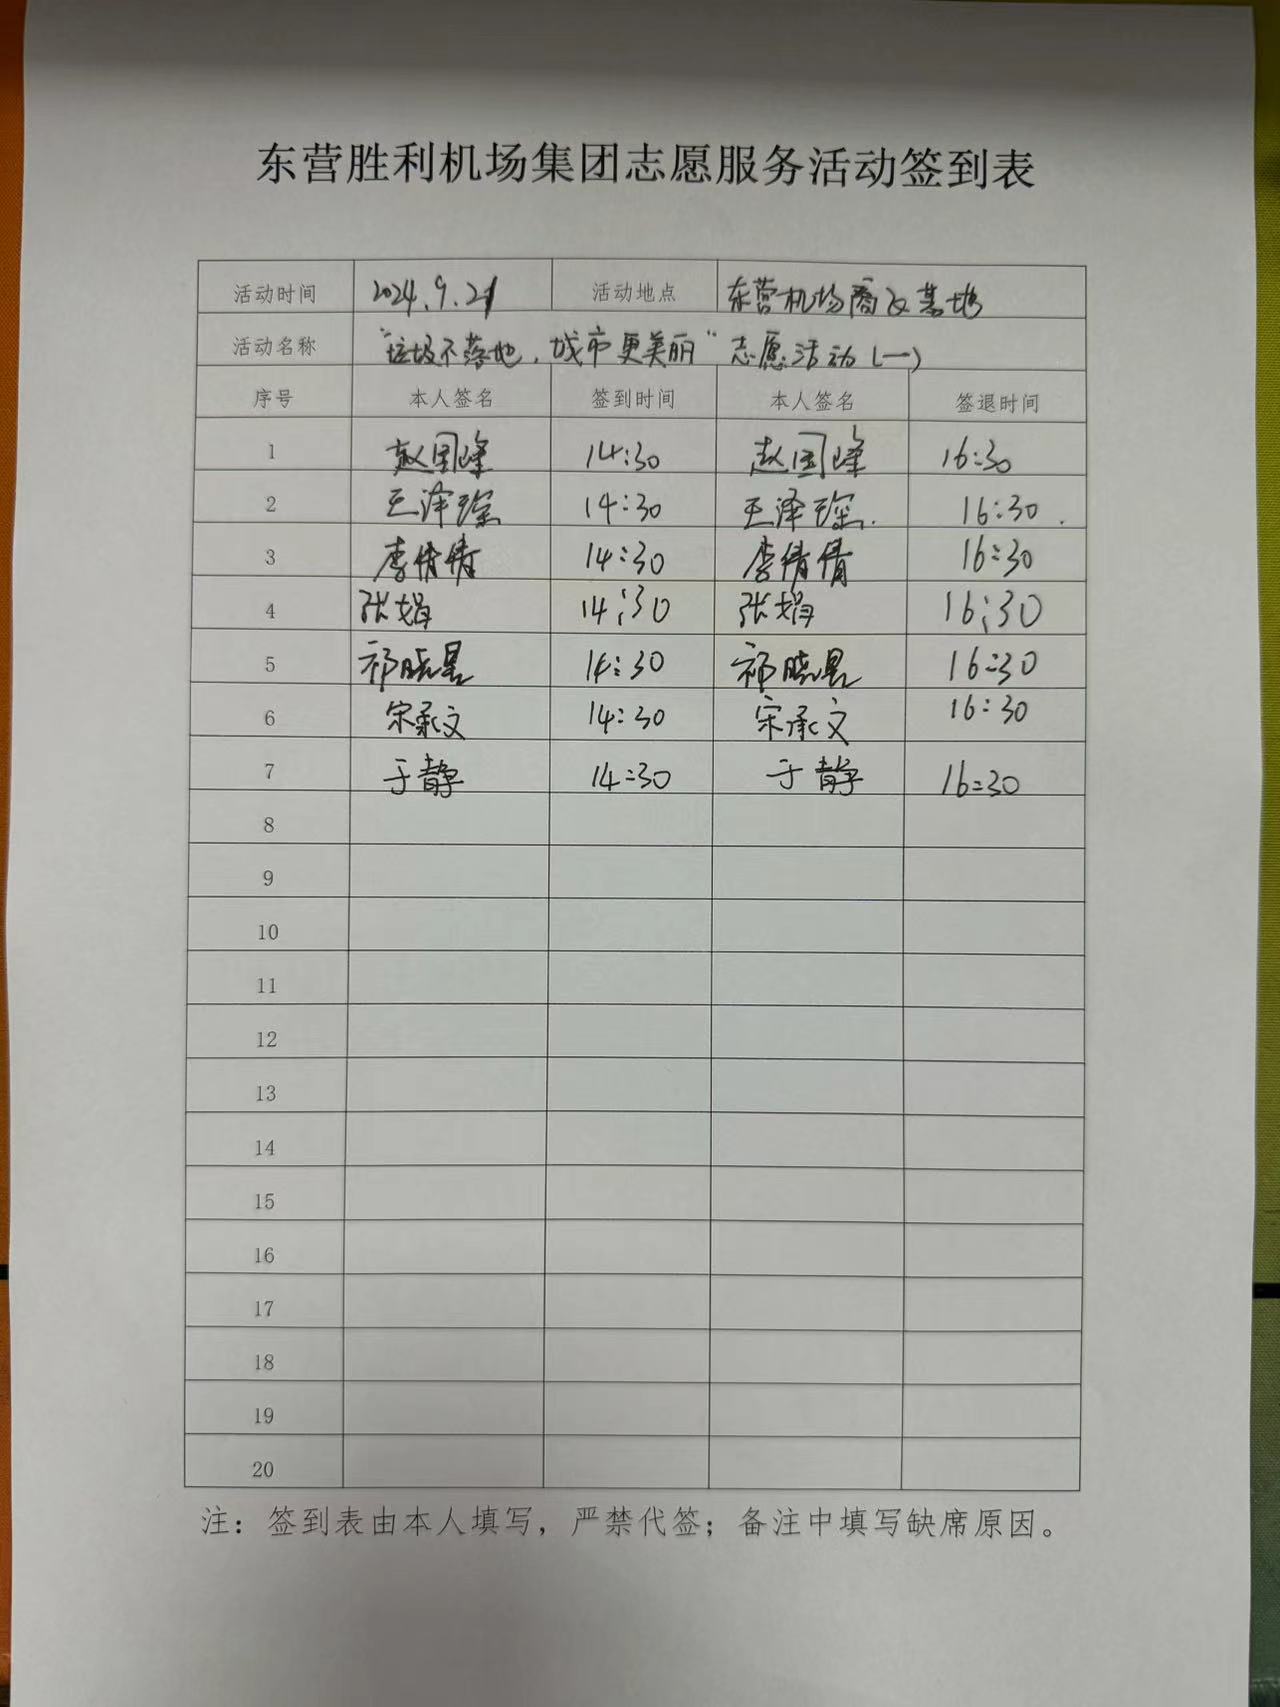 东营胜利机场集团志愿服务活动签到表
活动时间 2024.9.21 活动地点 东营机场商及基地
活动名称 "垃圾不落地,城市更美丽"志愿活动(一)
序号 本人签名 签到时间 本人签名 签退时间
1 赵国峰 14:30 赵国峰 16:30
2 王泽琛 14:30 王泽琛. 16:30.
3 李倩倩 14:30 李倩倩 16:30
4 张娟 14:30 张娟 16:30
5 祁晓 14:30 祁晓 16:30
6 宋承文 14:30 宋承文 16:30
7 于静 14:30 于静 16:30
8
9
10
11
12
13
14
15
16
17
18
19
20
注：签到表由本人填写，严禁代签；备注中填写缺席原因。